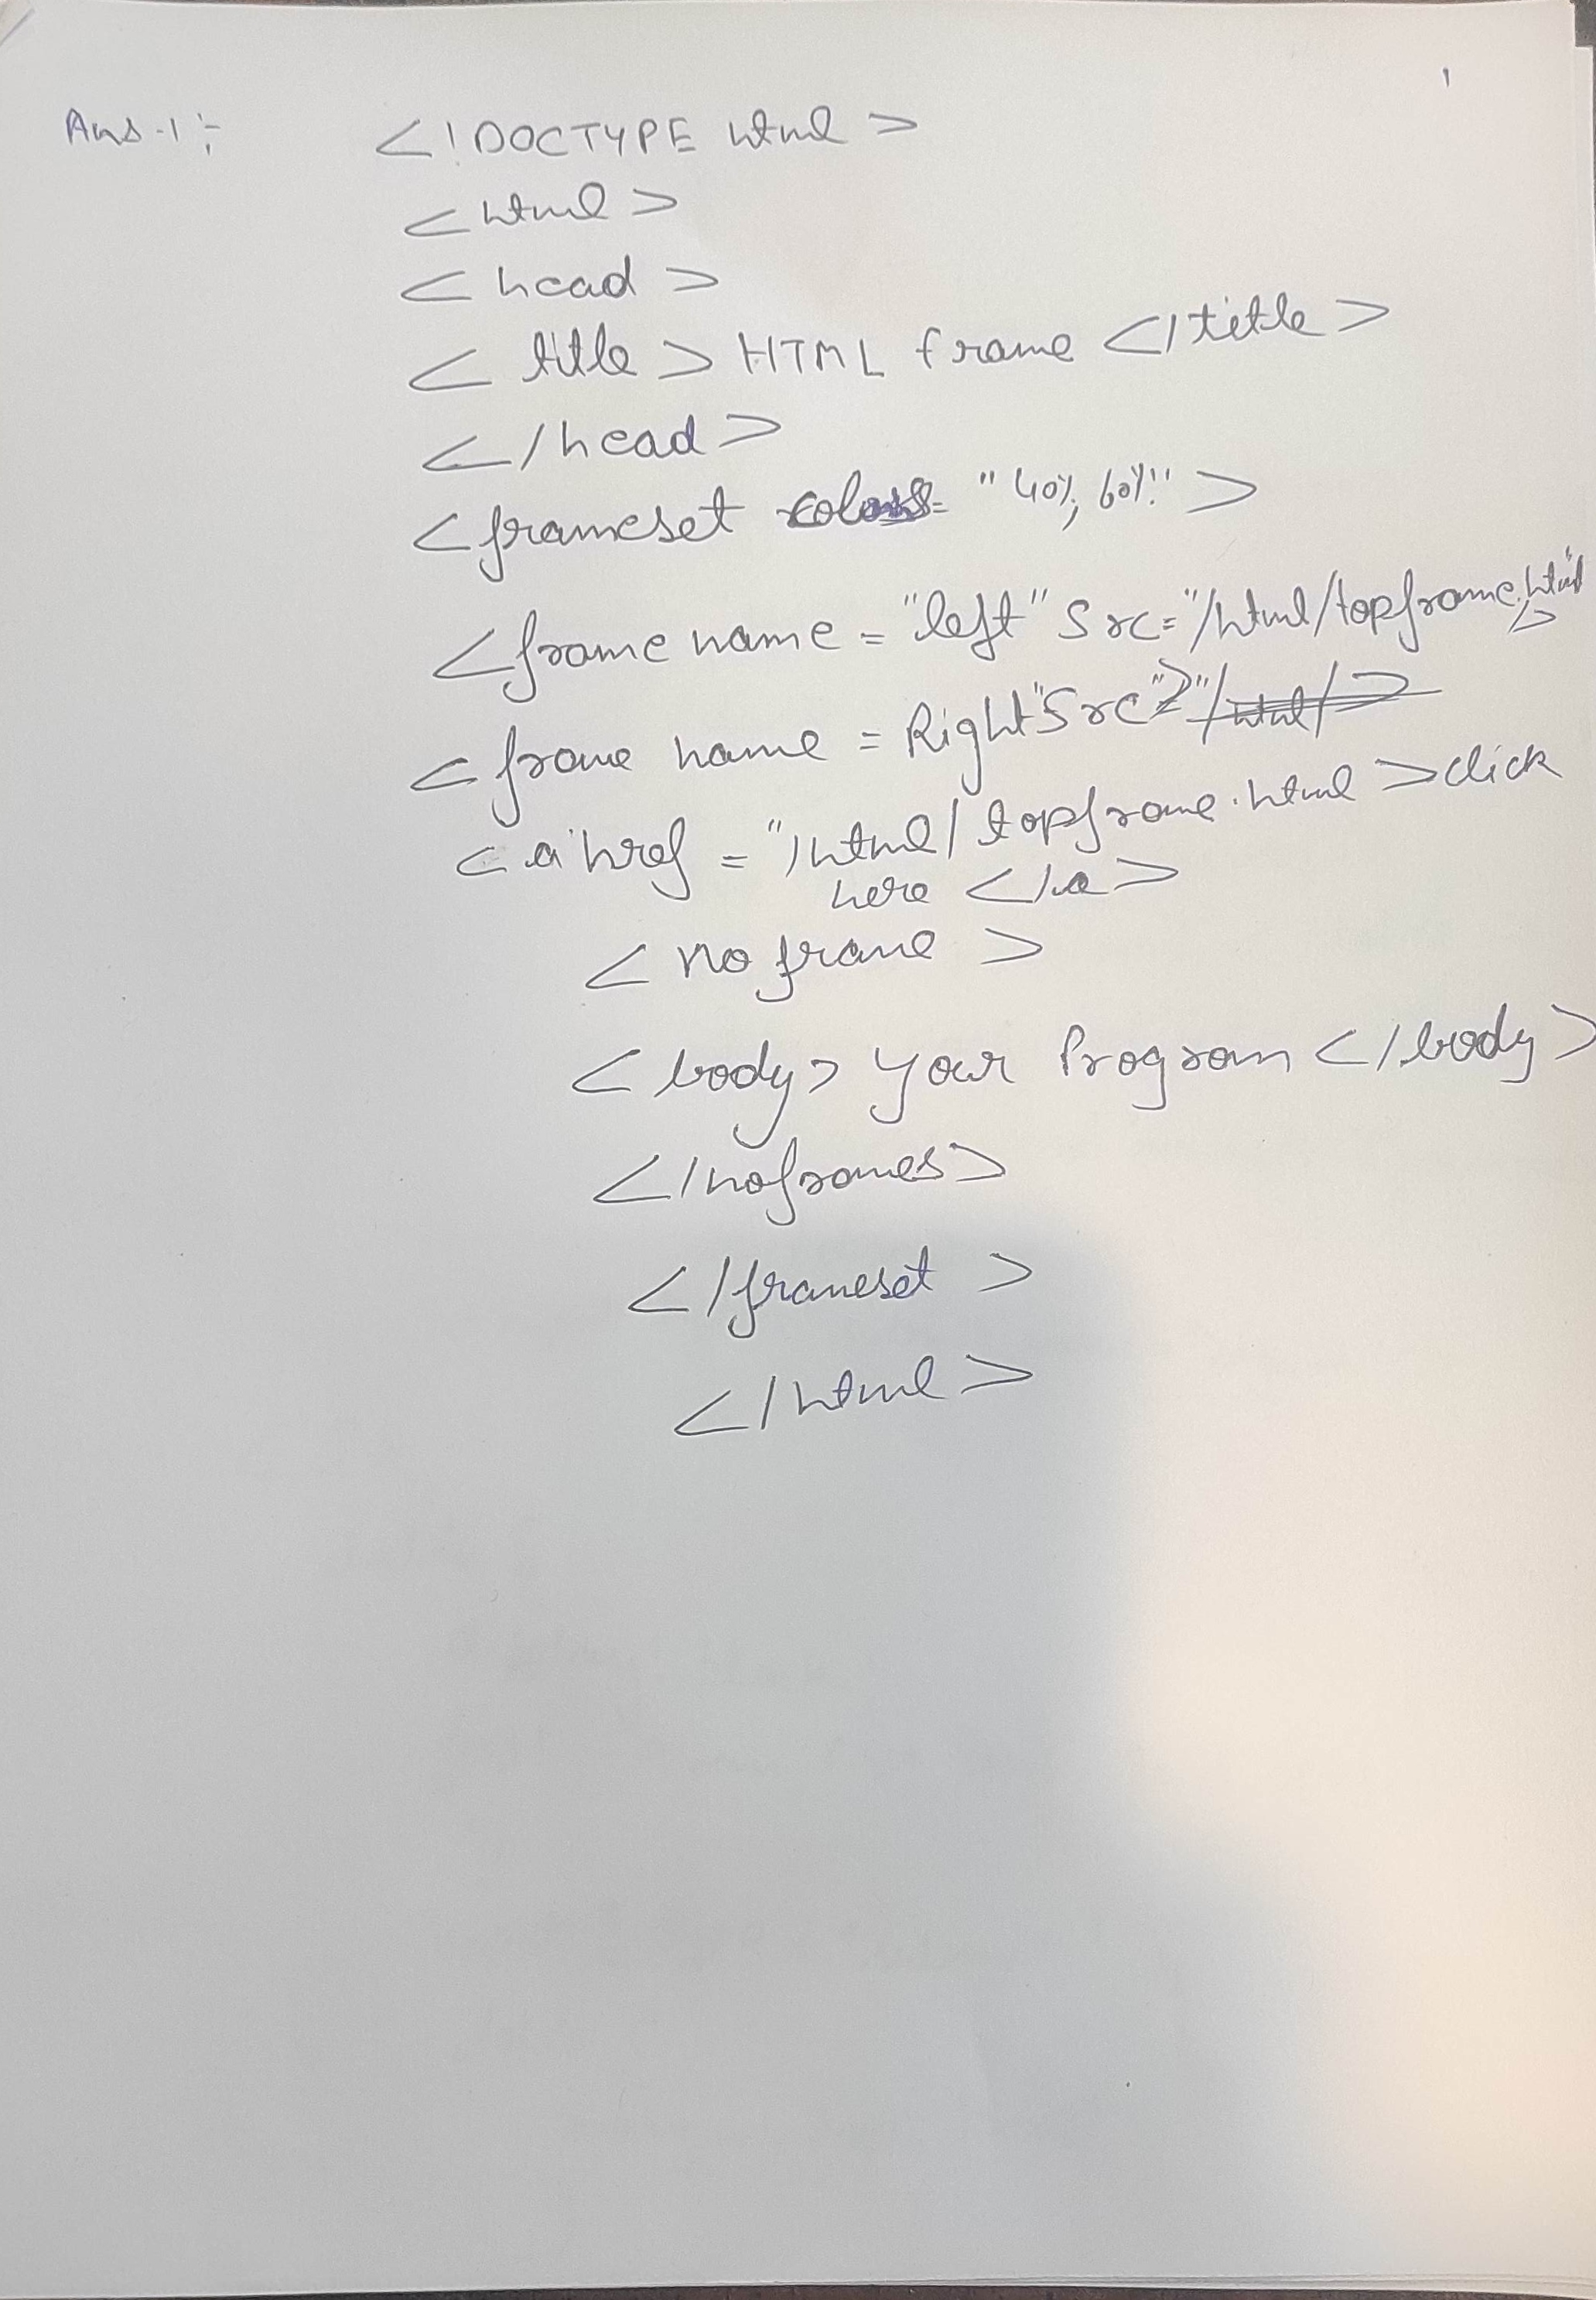 1
Ans-1:- <!DOCTYPE html>
<html>
<head>
<title> HTML frame </title>
</head>
<frameset = "40%, 60%">
<frame name = "left" Src="/html/topframe.html">
<frame name = Right" Src
<a href = "/html/topframe.html >click
here </a>
<no frame >
<body> your Program </body>
</noframes>
</frameset >
</html>